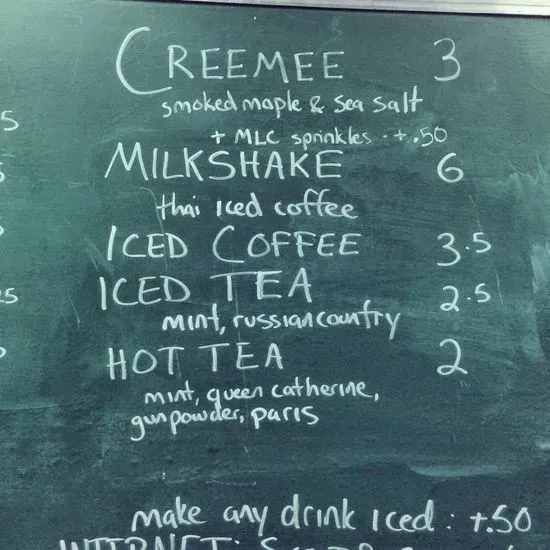 CREEMEE 3
smoked maple & sea salt
+ MLC sprinkles - +.50
MILKSHAKE 6
thai iced coffee
ICED COFFEE 3.5
ICED TEA 2.5
mint, russian country
HOT TEA 2
mint, queen catherine,
gunpowder, paris
make any drink iced: +.50
INTERNET: